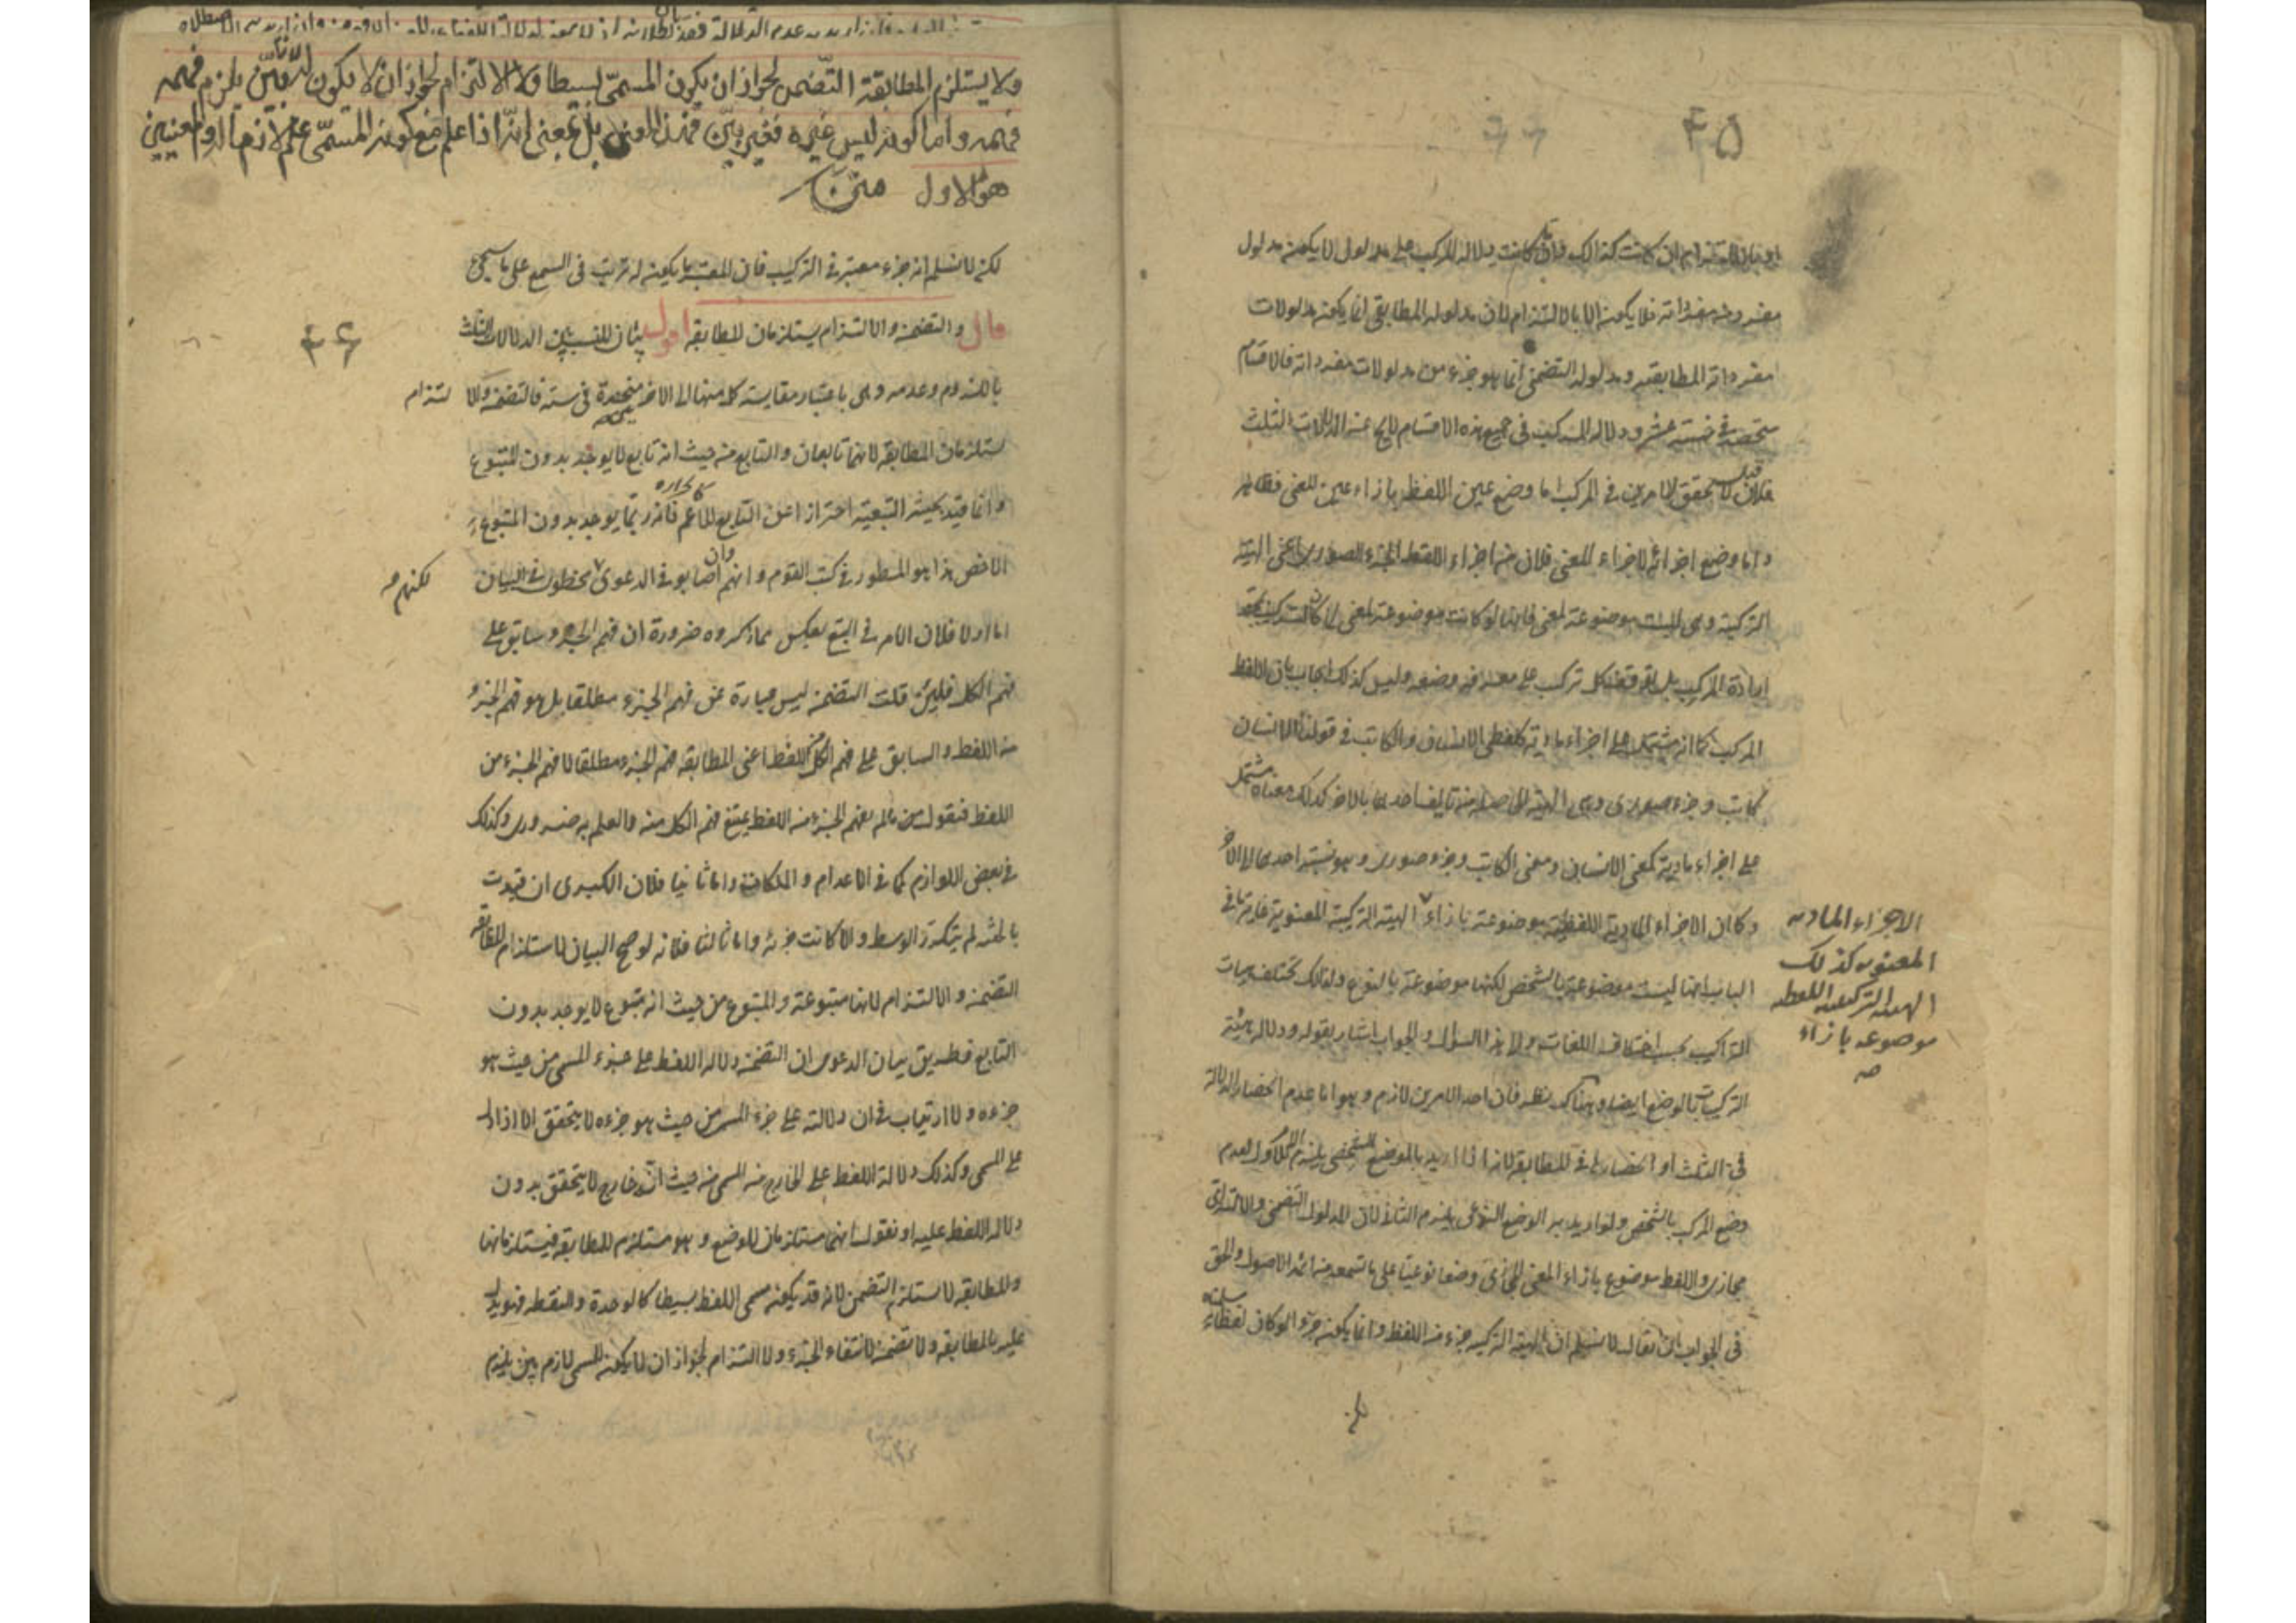 ٤٥
او بان التزام ان كانت كذلك وان كانت دلالة المركب على مدلول لا يكون مدلول
مفرد من مفرداته فلا يكون الا بالالتزام لان مدلوله المطابقي انما يكون مدلولات
مفرداته المطابقية ومدلوله التضمني انما هو جزء من مدلولات مفرداته فالاقسام
منحصرة في خمسة عشر ودلالة المركب في جميع هذه الاقسام لا يخ عن الدلالات الثلث
فلان تحقق الامرين في المركب اما وضع عين اللفظ بازاء عين المعنى فظاهر
واما وضع اجزائه لاجزاء المعنى فلان من اجزاء اللفظ الجزء الصوري اعني الهيئة
التركيبية وهي ليست موضوعة لمعنى فانها لو كانت موضوعة لمعنى
افادة المركب بل توقف كل تركيب على معرفة وضعه وليس كذلك اجاب بان اللفظ
المركب كما انه مشتمل على اجزاء مادية كلفظي الانسان والكاتب في قولنا الانسان
كاتب وجزء صوري وهي الهيئة الحاصلة من تاليف احدهما بالاخر كذلك معناه مشتمل
على اجزاء مادية كمعنى الانسان ومعنى الكاتب وجزء صوري وهو نسبة احدهما الى الاخر
وكما ان الاجزاء المادية اللفظية موضوعة بازاء الهيئة التركيبية المعنوية غاية ما في
الباب انها ليست موضوعة بالشخص لكنها موضوعة بالنوع ولذلك تختلف هيئات
التراكيب بحسب اختلاف اللغات والى هذا السؤال والجواب اشار بقوله ودلالة هيئة
التركيبات بالوضع ايضا وهناك نظر فان احد الامرين لازم وهو اما عدم انحصار الدلالة
في الثلث او انحصارها في المطابقة لانه ان اريد بالوضع الشخصي يلزم الاول لعدم
وضع المركب بالشخص ولو اريد به الوضع النوعي يلزم الثاني لان المدلول التضمني والالتزامي
مجازي واللفظ موضوع بازاء المعنى المجازي وضعا نوعيا على ما تسمعه من ائمة الاصول والحق
في الجواب ان يقال لا نسلم ان الهيئة التركيبية جزء من اللفظ وانما يكون جزءا لو كان لفظا سلمناه
الاجزاء المادية
المعنوية كذلك
الهيئة التركيبية اللفظية
موضوعة بازاء
صح
ولا يستلزم المطابقة التضمن لجواز ان يكون المسمى بسيطا ولا الالتزام لجواز ان لا يكون له لازم بين يلزم فهمه
فهمه واما كونه ليس غيره فغير بين
هو الاول متن
٤٦
لكن لا نسلم انه جزء معتبر في التركيب فان المعتبر ما يكون له ترتب في السمع على ما سيجئ
قال والتضمن والالتزام يستلزمان المطابقة اقول بيان للنسب بين الدلالات الثلث
باللزوم وعدمه وهي باعتبار مقايسة كل منها الى الاخر منحصرة في ستة فالتضمن والالتزام
يستلزمان المطابقة لانهما تابعان والتابع من حيث انه تابع لا يوجد بدون المتبوع
وانما قيد بحيث التبعية احترازا عن التابع الاعم كالحرارة فانه ربما يوجد بدون المتبوع
الاخص هذا هو المسطور في كتب القوم وانهم وان اصابوا في الدعوى لكنهم مخطئون في البيان
اما اولا فلان الامر في التبع بعكس ما ذكروه ضرورة ان فهم الجزء سابق على
فهم الكل فلئن قلت التضمن ليس عبارة عن فهم الجزء مطلقا بل هو فهم الجزء
من اللفظ والسابق على فهم الكل من اللفظ اعني المطابقة فهم الجزء مطلقا لا فهم الجزء من
اللفظ فنقول من ما لم يفهم الجزء من اللفظ يمتنع فهم الكل منه والعلم به ضروري وكذلك
في بعض اللوازم كما في الاعدام والملكات واما ثانيا فلان الكبرى ان قيدت
بالحيثية لم يتكرر الوسط والا كانت جزئية واما ثالثا فلانه لو صح البيان لاستلزام المطابقة
التضمن والالتزام لانها متبوعة والمتبوع من حيث انه متبوع لا يوجد بدون
التابع فطريق بيان الدعوى ان التضمن دلالة اللفظ على جزء المسمى من حيث هو
جزءه ولا ارتياب في ان دلالته على جزء المسمى من حيث هو جزءه لا يتحقق الا اذا دل
على المسمى وكذلك دلالة اللفظ على الخارج من المسمى من حيث انه خارج لا يتحقق بدون
دلالة اللفظ عليه او نقول انهما مستلزمان للوضع وهو مستلزم للمطابقة فيستلزمانها
والمطابقة لا تستلزم التضمن لانه قد يكون مسمى اللفظ بسيطا كالوحدة والنقطة فهو يدل
عليه بالمطابقة ولا تضمن لانتفاء الجزء ولا التزام لجواز ان لا يكون للمسمى لازم بين يلزم